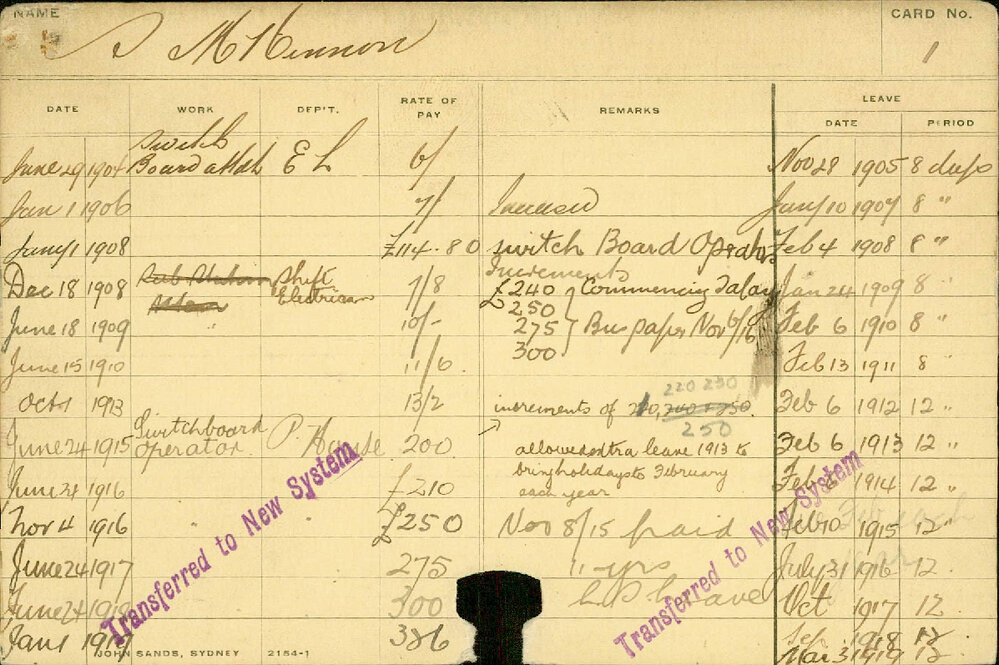 NAME
CARD No.
McKinnon
1
DATE WORK DEP'T. RATE OF PAY REMARKS LEAVE
DATE PERIOD
June 29 1904 Switch Board E L 6/ Nov 28 1905 8 days
Jan 1 1906 7/ Increased Jany 10 1907 8 "
Jany 1 1908 £114 . 8 0 Switch Board Feb 4 1908 8 "
Dec 18 1908 Shift Electrician 7/8 Increments £240 Commencing Jan 24 1909 8 "
250
June 18 1909 " 10/- 275 Bus paper Nov 6/16 Feb 6 1910 8 "
300
June 15 1910 11/6 Feb 13 1911 8 "
220 230
Oct 1 1913 13/2 increments of Feb 6 1912 12 "
250
June 24 1915 Switchboard operator P. House 200 allowed extra leave 1913 to Feb 6 1913 12 "
bring holidays to February
June 24 1916 £210 each year Feb 1914 12 "
Nov 4 1916 " " £250 Nov 8/15 paid Feb 10 1915 12 "
June 24 1917 275 11 yrs July 31 1916 12
June 24 300 Leave Oct 1917 12
Jan 1 1919 386 Sep 1918 12
Mar 3 1919 12
Transferred to New System
Transferred to New System
JOHN SANDS, SYDNEY 2154-1